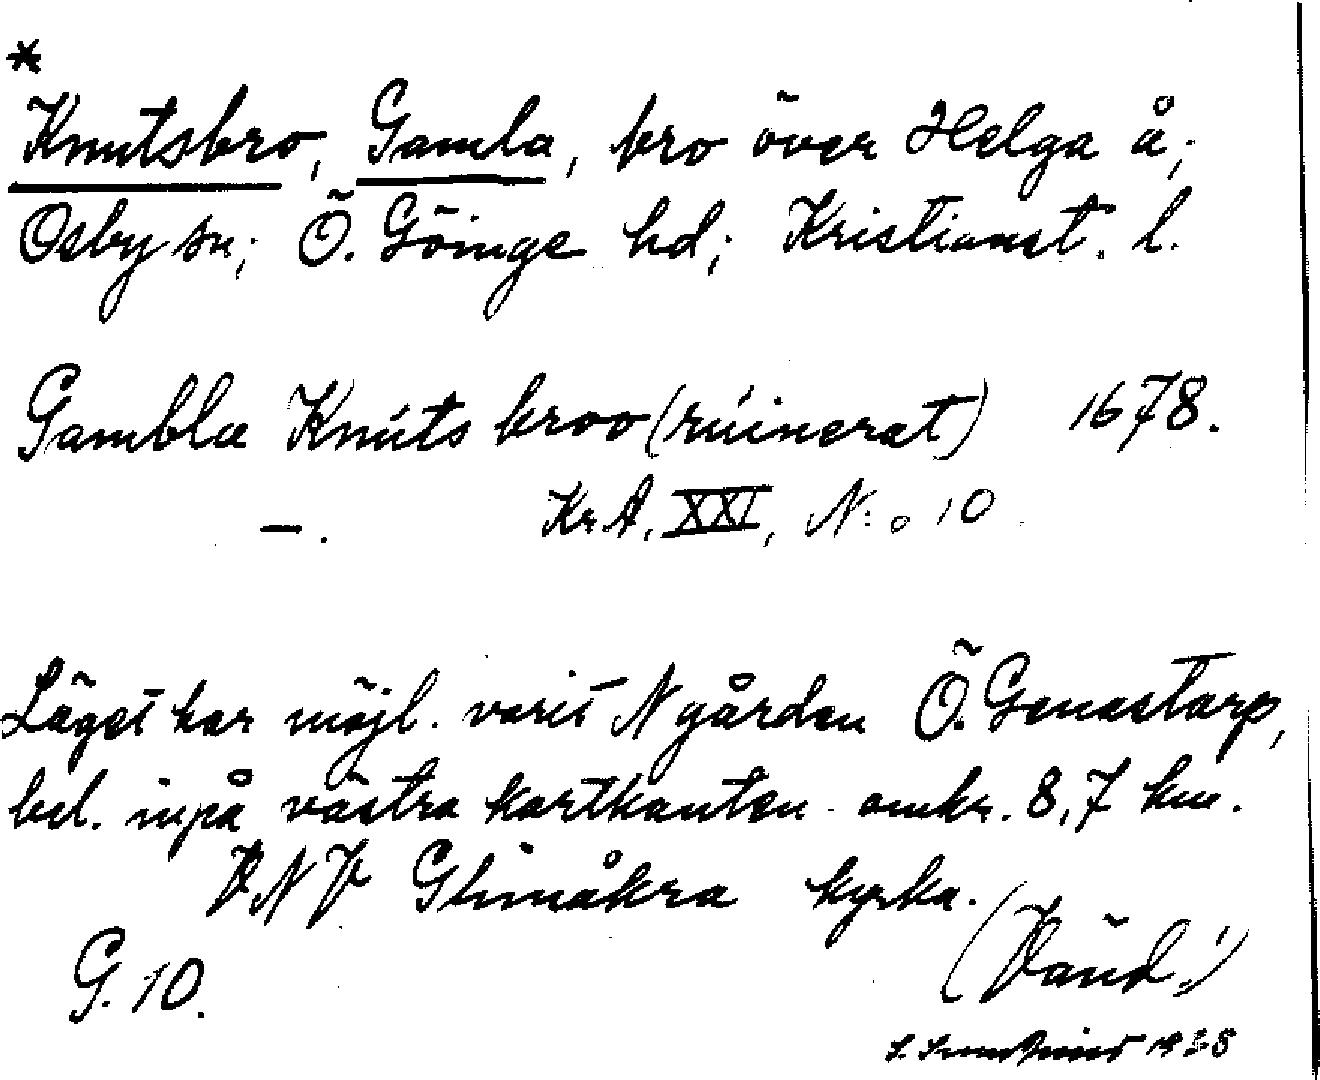 *
Knutsbro, Gamla, bro över Helga å;
Osby sn; Ö. Göinge hd; Kristianst. l.
Gambla Knúts broo (rúinerat) 1678.
—. Kr.A. XXI, N:o 10
Läget har möjl. varit N gården Ö. Genastorp,
bel. inpå västra kartkanten omkr. 8,7 km.
VNV Glimåkra kyrka.
(Vänd!)
G. 10.
1938